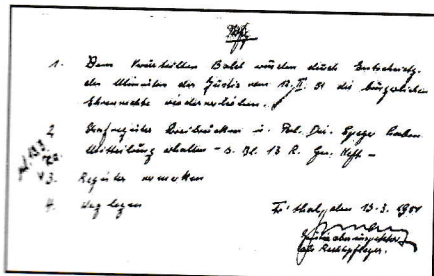 Vfg
1. Dem Verurteilten Bold wurden durch Entscheidg.
des Ministers der Justiz vom 12. II. 51 die bürgerlichen
Ehrenrechte wiederverliehen.
2 Strafregister Zweibrücken u. Pol. Dir. Speyer haben
Mitteilung erhalten - s. Bl. 13 R. Gn. Heft -
3. Register vermerken
4. Weglegen
Frankenthal, den 13.3.1951
Justizoberinspektor
als Rechtspfleger.